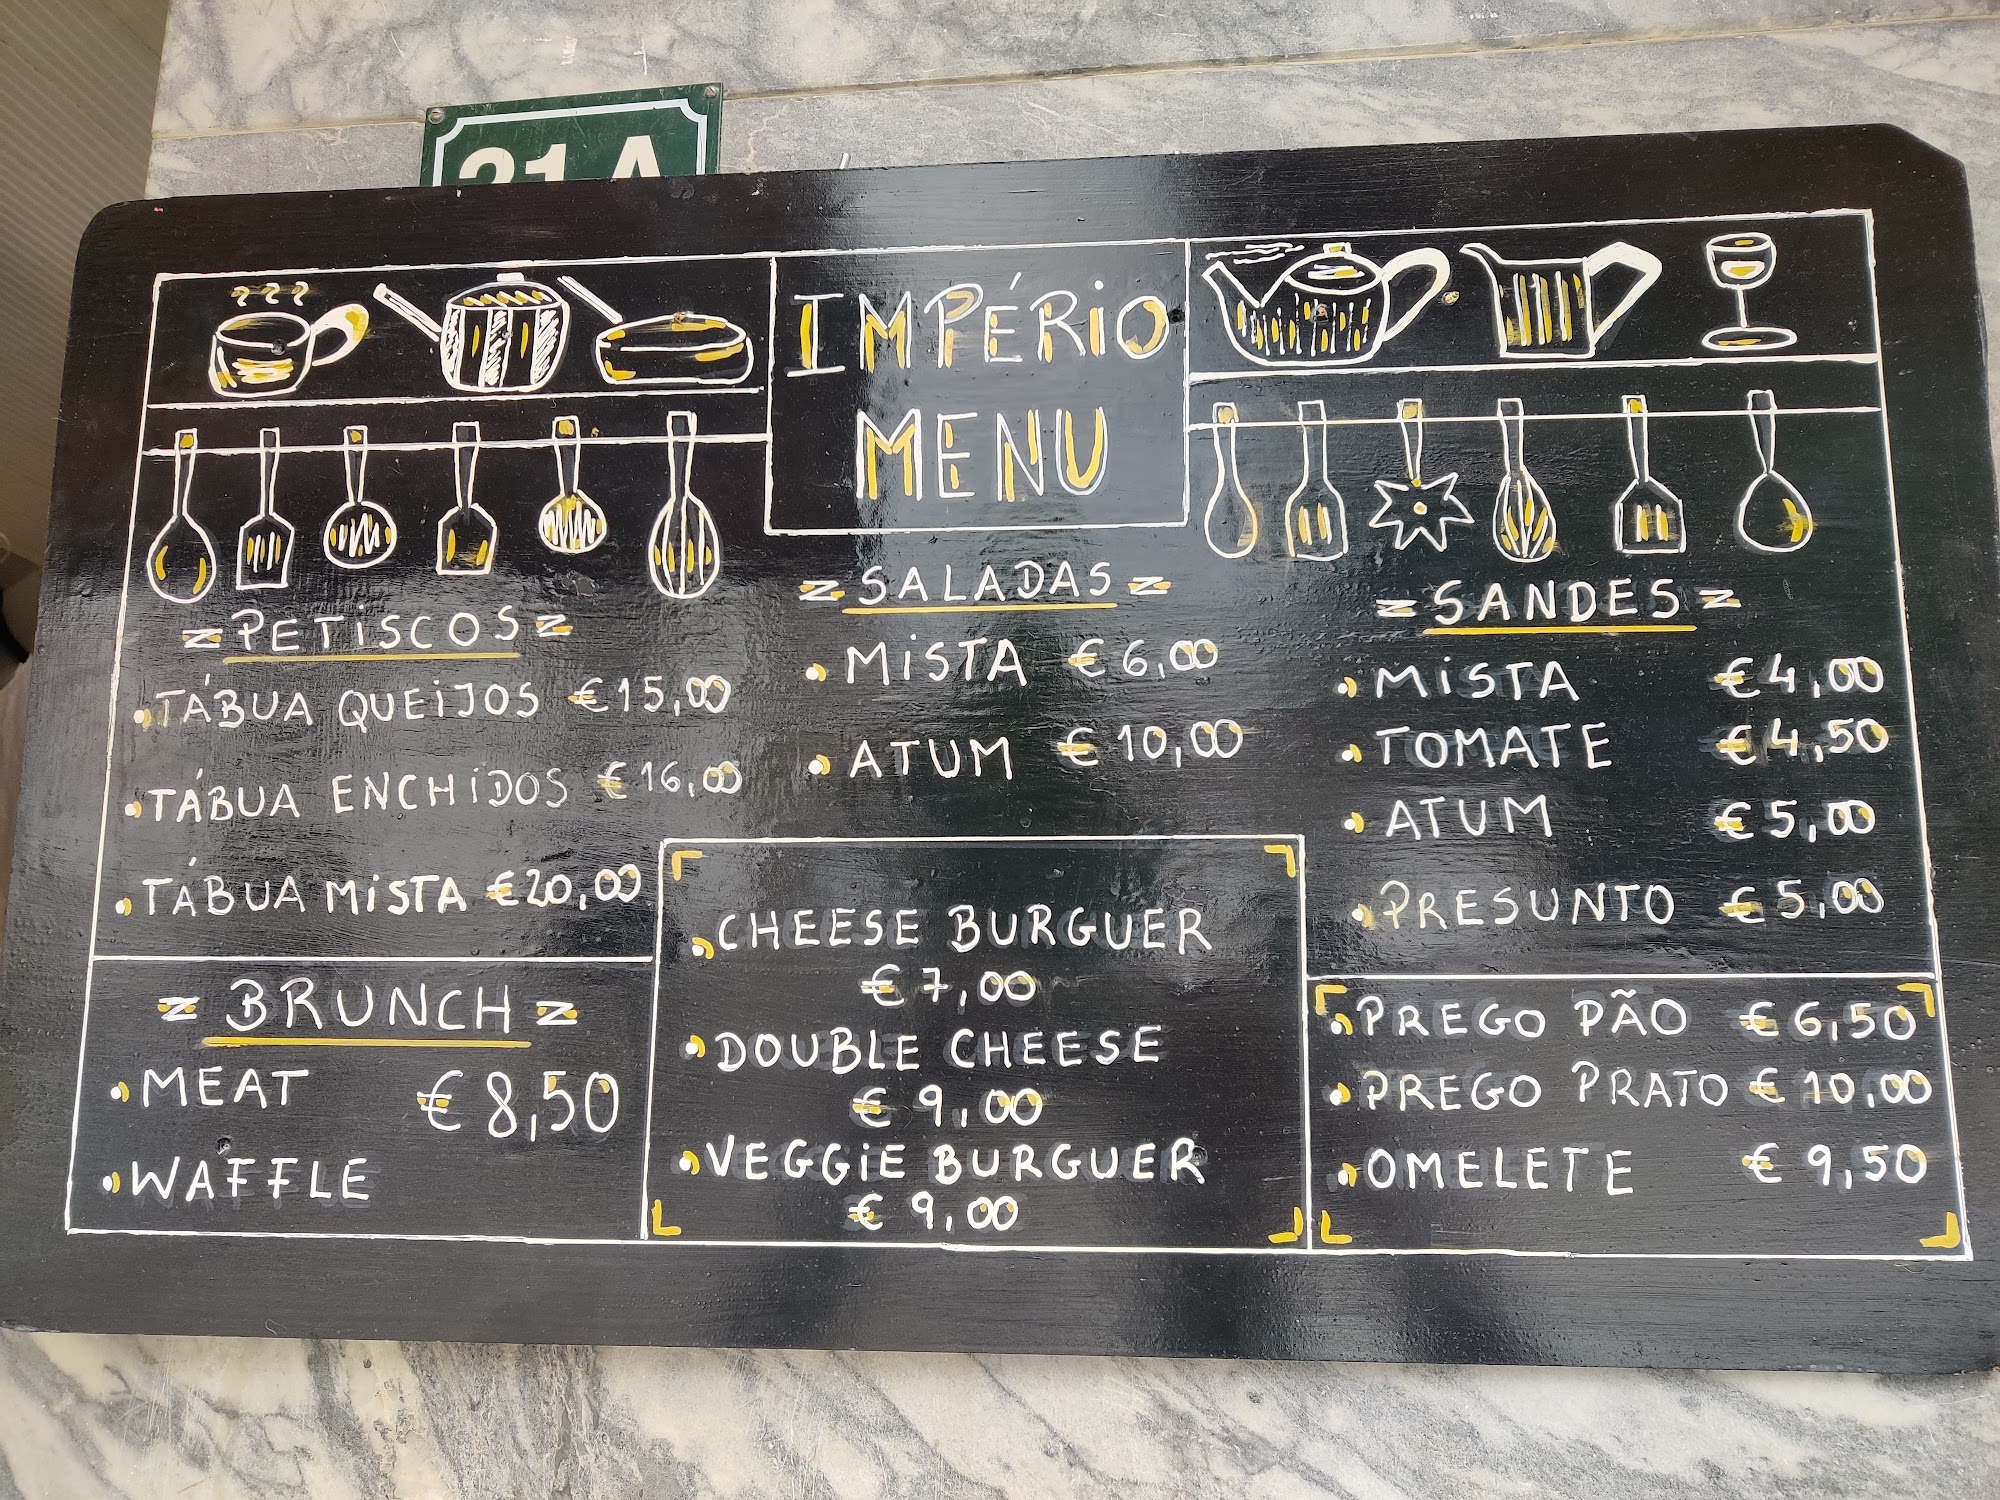 21 A
IMPÉRIO
MENU
PETISCOS
TÁBUA QUEIJOS €15,00
TÁBUA ENCHIDOS €16,00
TÁBUA MISTA €20,00
BRUNCH
MEAT €8,50
WAFFLE
SALADAS
MISTA €6,00
ATUM €10,00
CHEESE BURGUER
€7,00
DOUBLE CHEESE
€9,00
VEGGIE BURGUER
€9,00
SANDES
MISTA €4,00
TOMATE €4,50
ATUM €5,00
PRESUNTO €5,00
PREGO PÃO €6,50
PREGO PRATO €10,00
OMELETE €9,50